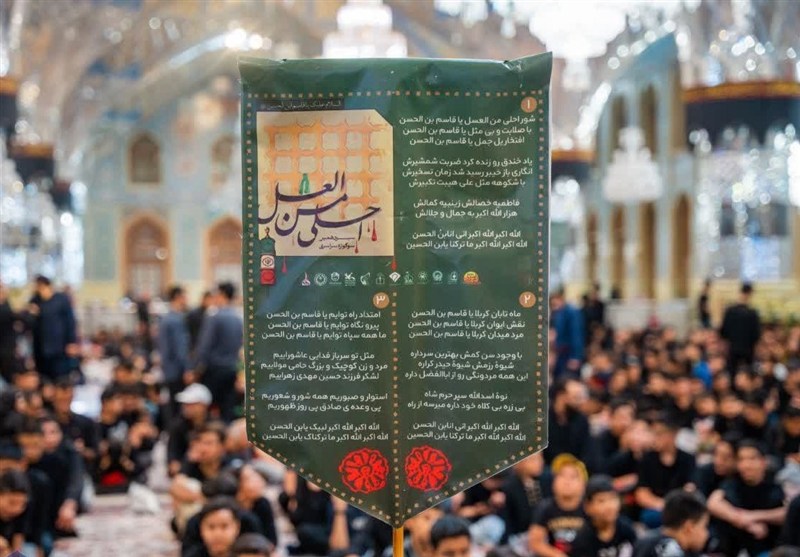 السلام علیک یا قاسم بن الحسن
احلی من العسل
سیزدهمین
سوگواره سراسری
۱
شور احلی من العسل یا قاسم بن الحسن
با صلابت و بی مثل یا قاسم بن الحسن
افتخار یل جمل یا قاسم بن الحسن
یاد خندق رو زنده کرد ضربت شمشیرش
انگاری باز خیبر رسید شد زمان تسخیرش
با شکوهه مثل علی هیبت تکبیرش
فاطمیه خصالش زینبیه کمالش
هزار الله اکبر به جمال و جلالش
الله اکبر الله اکبر انی انابن الحسن
الله اکبر الله اکبر ما ترکتا یابن الحسین
۲
ماه تابان کربلا یا قاسم بن الحسن
نقش ایوان کربلا یا قاسم بن الحسن
مرد میدان کربلا یا قاسم بن الحسن
با وجود سن کمش بهترین سرداره
شیوهٔ رزمش شیوهٔ حیدر کراره
این همه مردونگی رو از اباالفضل داره
نوهٔ اسدالله سپر حرم شاه
بی زره بی کلاه خود داره میرسه از راه
الله اکبر الله اکبر انی انابن الحسن
الله اکبر الله اکبر ما ترکتا یابن الحسین
۳
امتداد راه توایم یا قاسم بن الحسن
پیرو نگاه توایم یا قاسم بن الحسن
ما همه سپاه توایم یا قاسم بن الحسن
مثل تو سرباز فدایی عاشوراییم
مرد و زن کوچیک و بزرگ حامی مولاییم
لشکر فرزند حسین مهدی زهراییم
استوار و صبوریم همه شور و شعوریم
پی وعده ی صادق پی روز ظهوریم
الله اکبر الله اکبر لبیک یابن الحسن
الله اکبر الله اکبر ما ترکناک یابن الحسین